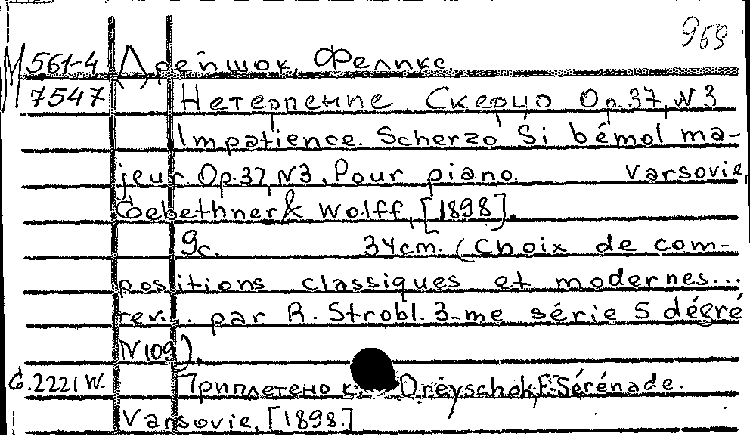 969
М 561-4 Дрейшок, Феликс.
7547 Нетерпение Скерцо Op.37, N 3
Impatience. Scherzo Si bémol ma-
jeur. Op.37, N3. Pour piano. Varsovie,
Goebethner & Wolff, [1898].
9с. 34cm. (Choix de com-
positions classiques et modernes...
rev... par R. Strobl. 3-me série 5 dégré
N 109).
G.2221 W. Приплетено к Dreyschok, F. Sérénade.
Varsovie, [1898.]